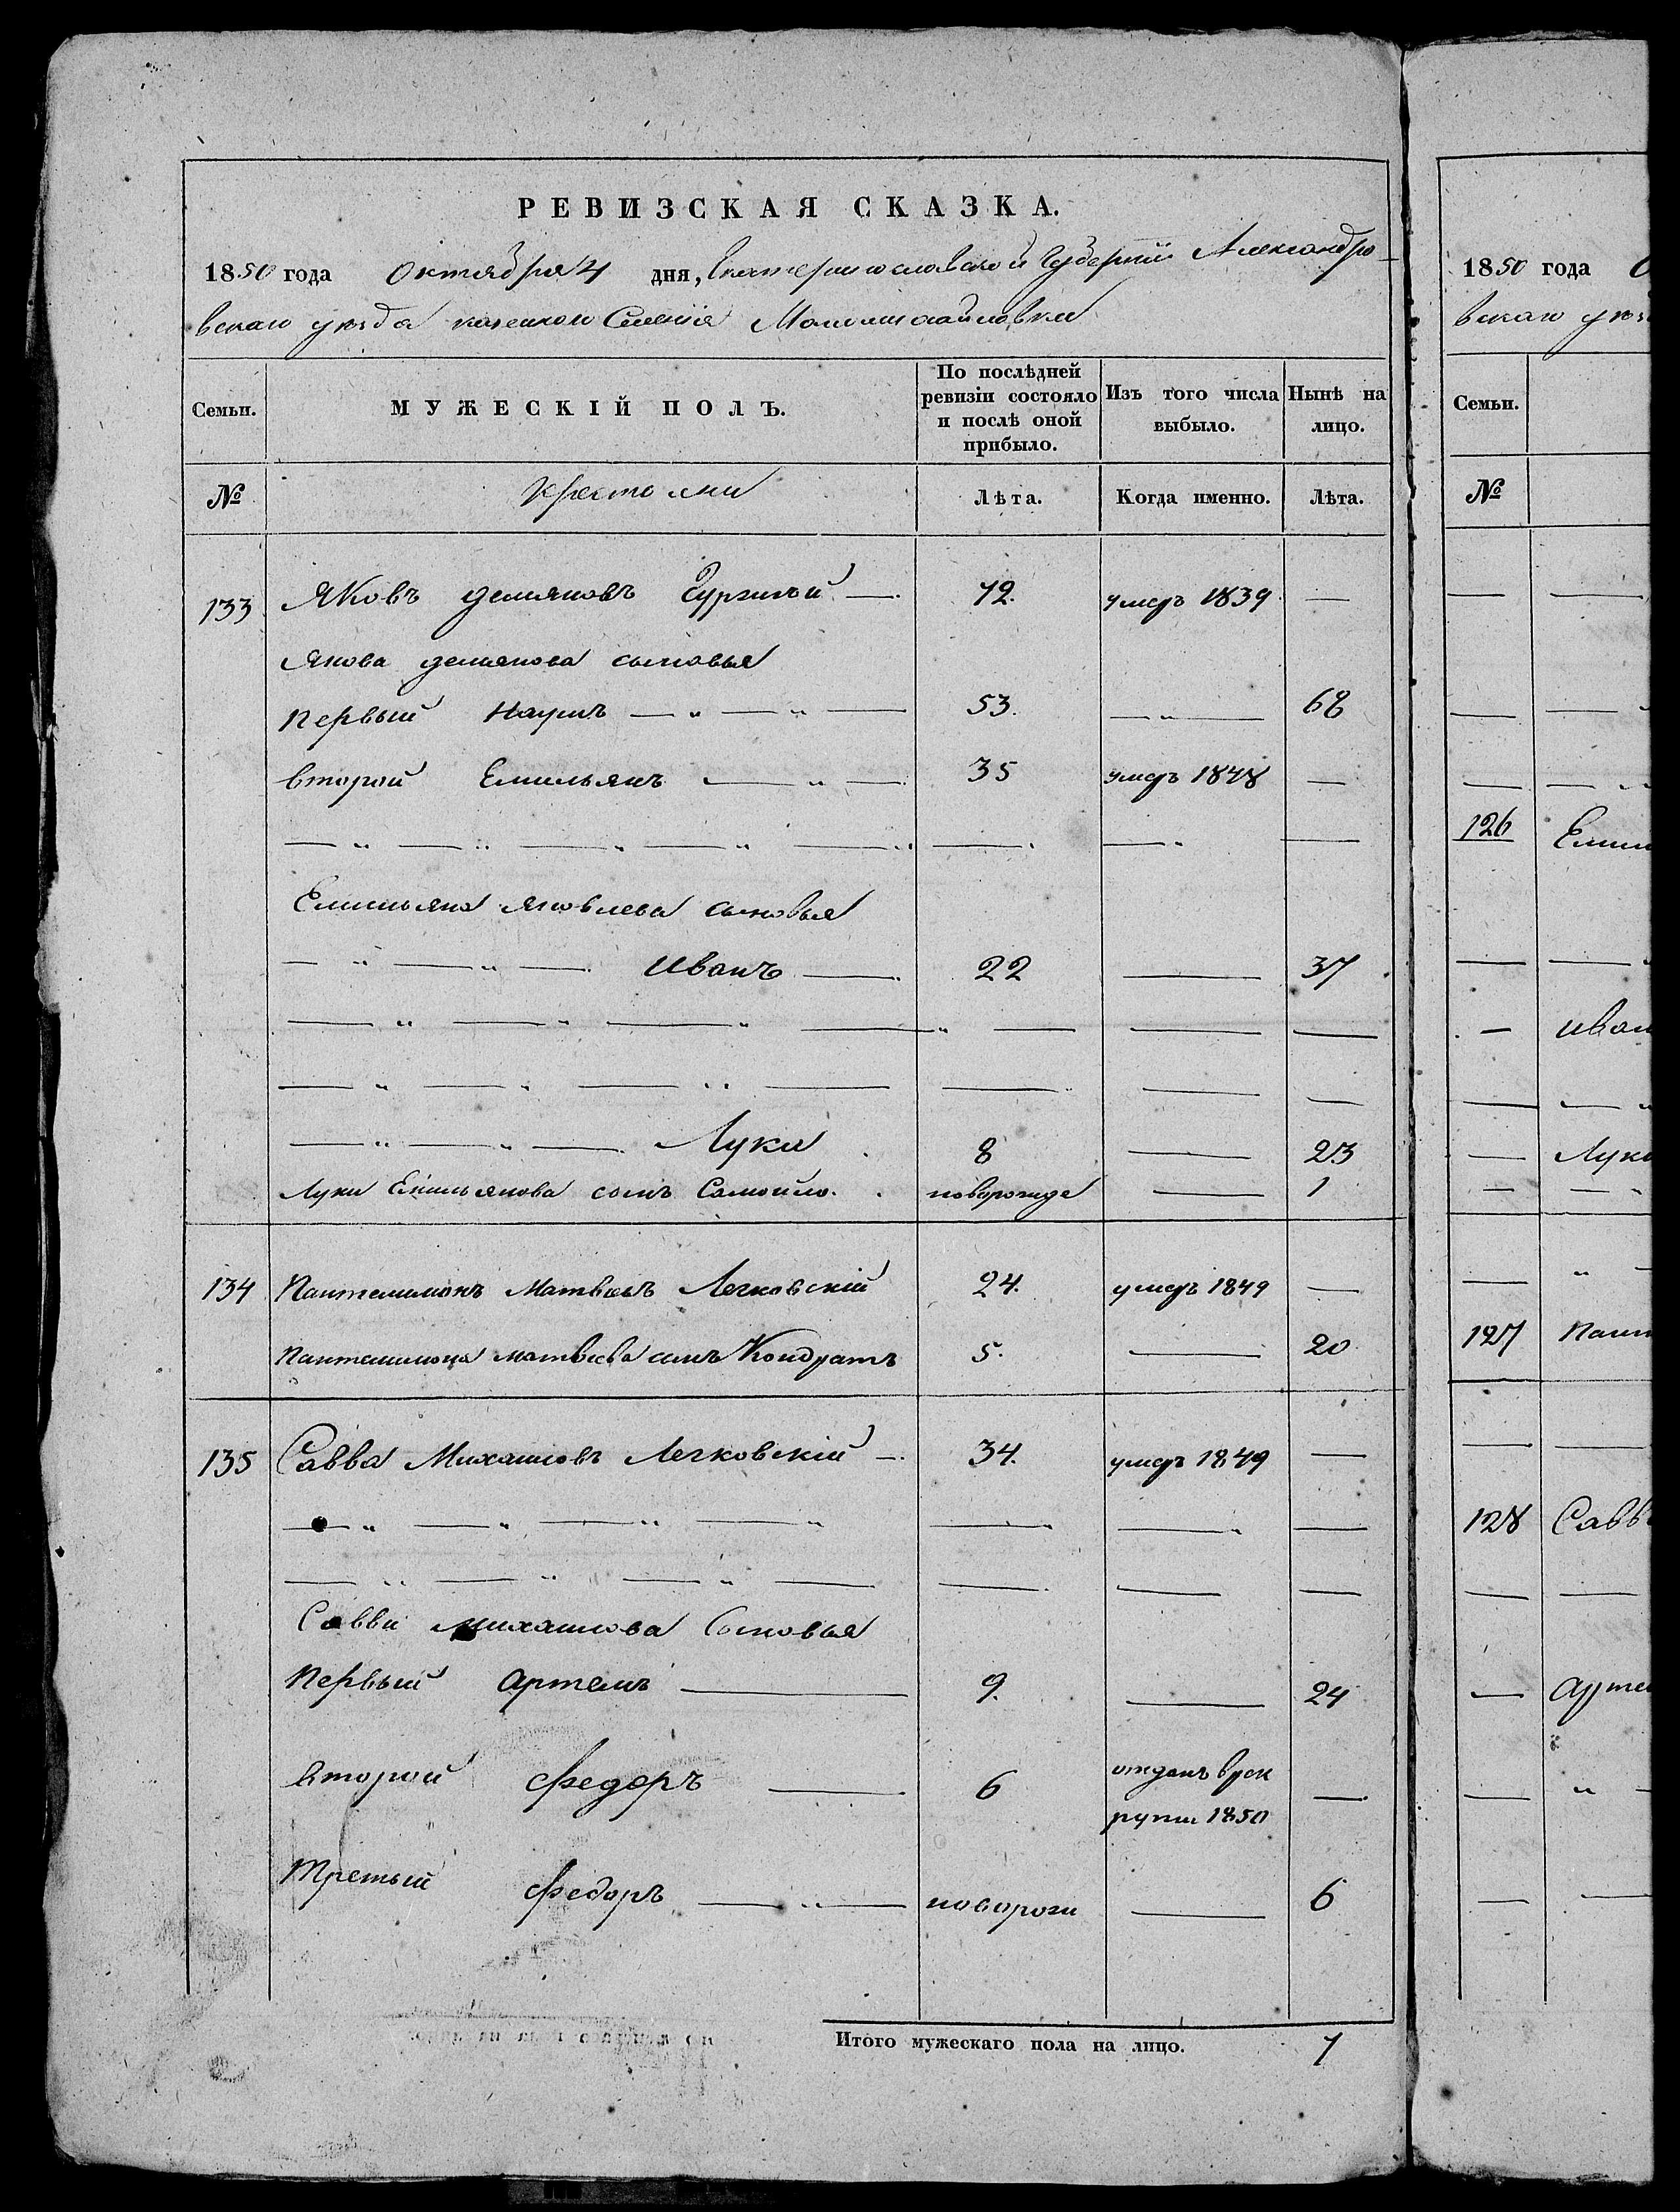 РЕВИЗСКАЯ СКАЗКА.
1850 года Октября 4 дня, Екатеринославской Губернии Александро-
вскаго уезда казенного Селения Маломихайловки
Семьи. МУЖЕСКІЙ ПОЛЪ. По послѣдней ревизіи состояло и послѣ оной прибыло. Изъ того числа выбыло. Нынѣ на лицо.
№ Крестьяни Лѣта. Когда именно. Лѣта.
133 Яковъ Демяновъ — 72. умеръ 1839 —
Якова Демянова сыновья
Первый Наумъ — " — " — 53. — " — 68
второй Емильянъ — " — 35 умеръ 1848 —
Емильяна Яковлева сыновья
— " — " — Иванъ — 22 — 37
— " — " — Луки 8 — 23
Луки Емильянова сынъ Самойло. новорожде — 1
134 Пантелимонъ Матвеевъ Легковскій 24. умеръ 1849 —
Пантелимона Матвеева сынъ Кондратъ 5. — 20
135 Савва Михаиловъ Легковскій — 34. умеръ 1849 —
Савви Михаилова Сыновья
Первый Артемъ — 9. — 24
второй Федоръ — 6 отданъ врек
рути 1850 —
Третый Федоръ — " — новорож — 6
Итого мужескаго пола на лицо. 7
1850 года О
вскаго уез
Семьи.
№
126 Емил
— Иван
— Луки
127 Пант
128 Савв
— Арте